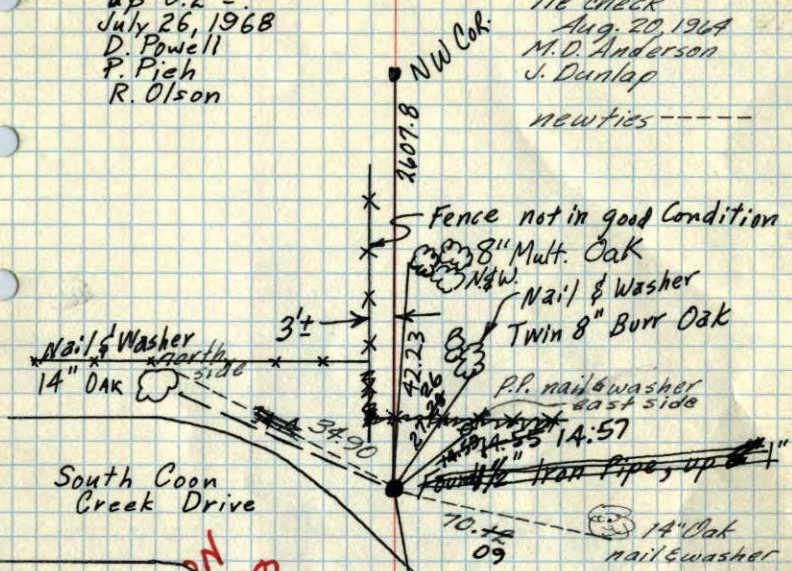 up 0.2 -.
July 26, 1968
D. Powell
P. Pieh
R. Olson
Tie check
Aug. 20, 1964
M.D. Anderson
J. Dunlap
new ties -----
NW Cor.
2607.8
Fence not in good Condition
8" Mult. Oak
N.&W.
Nail & Washer
Twin 8" Burr Oak
3'±
Nail & Washer
north side
14" Oak
42.23
P.P. nail & washer
east side
34.90
14.55 14.57
Found 1/2" Iron Pipe, up 1"
South Coon
Creek Drive
70.
09
14" Oak
nail & washer